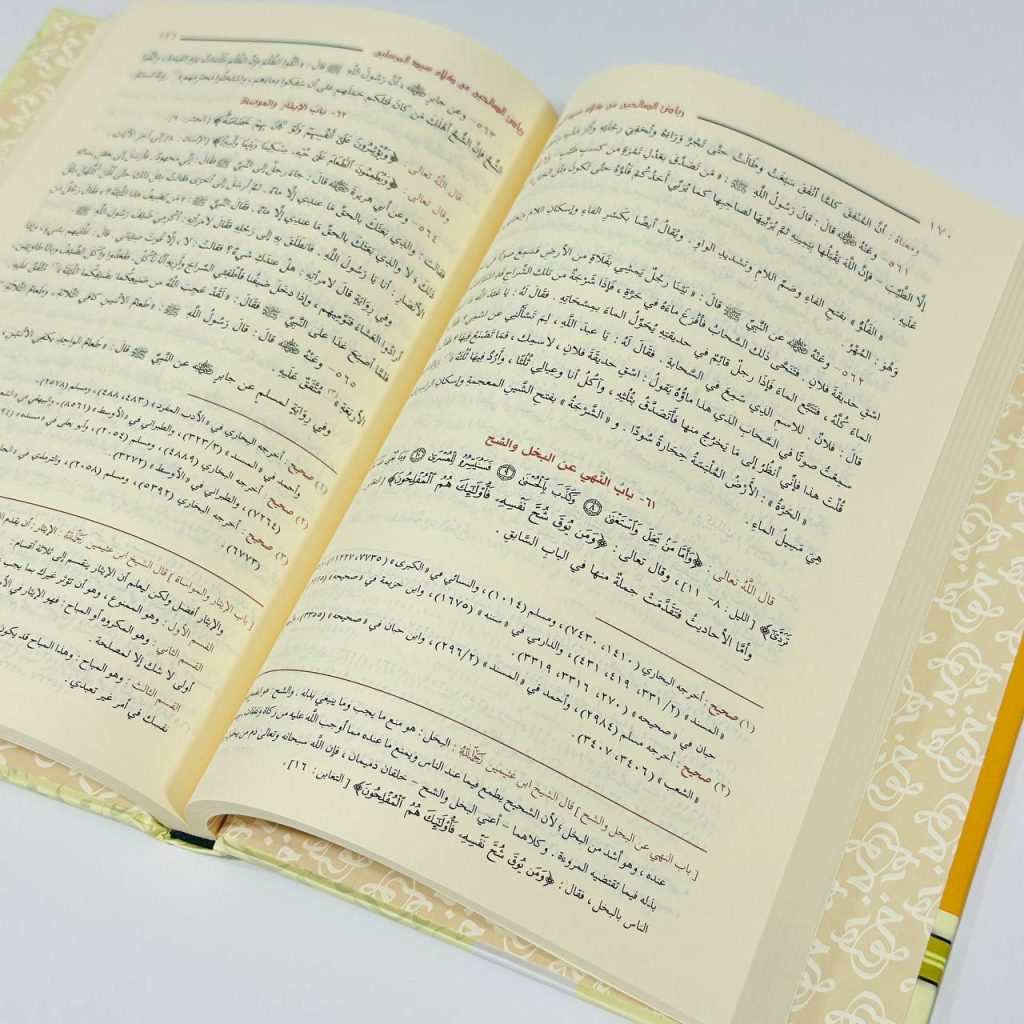 رياض الصالحين من كلام سيد المرسلين
١٧٠
ومعناهُ : أنَّ المُنْفِقَ كلَّمَا أنْفَقَ سَبَغَتْ وطَالَتْ حتَّى تَجُرَّ وَرَاءَهُ وتُخْفِيَ رِجْلَيْهِ
٥٦١- وعَنْهُ ﷺ قال : قَالَ رَسُولُ اللَّهِ ﷺ : « مَن تَصَدَّقَ بِعَدْلِ تَمْرَةٍ مِن كَسْبٍ طَيِّبٍ ،
إلَّا الطَّيِّبَ - فإنَّ اللَّهَ يَقْبَلُها بِيَمِينِهِ ثُمَّ يُرَبِّيْهَا لصاحِبِها كما يُرَبِّي أحَدُكُمْ فَلُوَّهُ حتَّى تَكُونَ مِثْلَ
عليه .
« الفَلُوُّ » بفتحِ الفاءِ وضمِّ اللامِ وتشديدِ الواوِ . ويُقالُ أيضًا بكَسْرِ الفاءِ وإسكانِ اللامِ
وهُوَ : المُهْرُ .
٥٦٢- وعَنْهُ عن النَّبِيِّ ﷺ قال : « بَيْنَا رَجُلٌ يَمشي بفَلاةٍ من الأرضِ فسَمِعَ صوتًا
اسْقِ حديقةَ فلانٍ . فتَنَحَّى ذلكَ السَّحابُ فأَفْرَغَ مَاءَهُ في حَرَّةٍ ، فإذا شَرْجَةٌ من تلكَ الشِّراجِ
الماءَ كُلَّهُ ، فتَتَبَّعَ الماءَ فإذَا رجلٌ قائمٌ في حديقتِهِ يُحَوِّلُ الماءَ بمِسْحاتِهِ . فقالَ لَهُ : يا عبدَ اللَّهِ
قال : فلانٌ . للاسمِ الذي سَمِعَ في السَّحابةِ . فقالَ لهُ : يا عبدَ اللَّهِ ، لِمَ تَسْألُني عن اسْمي ؟
سمِعْتُ صوتًا في السَّحابِ الذي هذا ماؤُهُ يقولُ : اسْقِ حديقةَ فلانٍ ، لاسمِكَ ، فمَا تَصْنَعُ فيها ؟
قُلْتَ هذا فإنِّي أَنظُرُ إلى مَا يَخْرُجُ منها فأَتَصَدَّقُ بثُلُثِهِ ، وآكُلُ أنا وعيالي ثُلُثًا ، وأَرُدُّ فيها ثُلُثَهُ
« الحَرَّةُ » : الأَرْضُ المُلْبَسَةُ حِجَارَةً سُودًا . و « الشَّرْجَةُ » بفتحِ الشِّينِ المعجمةِ وإسكانِ
هِيَ مَسِيلُ الماءِ .
٦١- بابُ النَّهي عن البخل والشح
قال اللَّهُ تعالى : ﴿وَأَمَّا مَنْ بَخِلَ وَاسْتَغْنَىٰ ۝٨ وَكَذَّبَ بِالْحُسْنَىٰ ۝٩ فَسَنُيَسِّرُهُ لِلْعُسْرَىٰ ۝١٠ وَمَا
تَرَدَّىٰ﴾ [ الليل : ٨- ١١] ، وقال تعالى : ﴿وَمَن يُوقَ شُحَّ نَفْسِهِ فَأُوْلَٰئِكَ هُمُ الْمُفْلِحُونَ﴾
وأمَّا الأحاديثُ فتقدَّمَتْ جملةٌ منها في البابِ السَّابقِ .
(١) صحيح : أخرجه البخاري (١٤١٠، ٧٤٣٠) ، ومسلم (١٠١٤) ، والنسائي في « الكبرى »
« المسند » (٢/ ٣٣١، ٤١٩، ٤٣١) ، والدارمي في « سننه » (١٦٧٥) ، وابن خزيمة في « صحيحه »
حبان في « صحيحه » (٢٧٠، ٣٣١٦، ٣٣١٩) .
(٢) صحيح : أخرجه مسلم (٢٩٨٤) ، وأحمد في « المسند » (٢/ ٢٩٦) ، وابن حبان في « صحيحه » (٣٣٥٥)
« الشعب » (٣٤٠٦، ٣٤٠٧) .
[ باب النهي عن البخل والشح ] قال الشيخ ابن عثيمين رَحِمَهُ اللَّهُ : البخل : هو منع ما يجب وما ينبغي بذله . والشح :
عنده ، وهو أشد من البخل ؛ لأن الشحيح يطمع فيما عند الناس ويمنع ما عنده مما أوجب الله عليه من زكاة ونفقات
بذله فيما تقتضيه المروءة . وكلاهما - أعني البخل والشح - خلقان ذميمان ، فإن الله سبحانه وتعالى ذم من يبخل
الناس بالبخل ، فقال : ﴿وَمَن يُوقَ شُحَّ نَفْسِهِ فَأُوْلَٰئِكَ هُمُ الْمُفْلِحُونَ﴾ [ التغابن : ١٦] .
رياض الصالحين من كلام سيد المرسلين
٥٦٣- وعن جابرٍ ، أنَّ رَسُولَ اللَّهِ ﷺ قال : « اتَّقُوا الظُّلْمَ فإنَّ الظُّلْمَ ظُلُمَاتٌ يَومَ القِيَامَةِ ، واتَّقُوا
الشُّحَّ فإنَّ الشُّحَّ أهْلَكَ مَن كانَ قَبْلَكُم حَمَلَهم على أن سَفَكوا دِمَاءَهم ، واسْتَحَلُّوا مَحَارِمَهم » .
٦٢- باب الإيثار والمواساة
قال اللَّهُ تعالى : ﴿وَيُؤْثِرُونَ عَلَىٰ أَنفُسِهِمْ وَلَوْ كَانَ بِهِمْ خَصَاصَةٌ﴾ [ الحشر : ٩] .
وقال تعالى : ﴿وَيُطْعِمُونَ الطَّعَامَ عَلَىٰ حُبِّهِ مِسْكِينًا وَيَتِيمًا وَأَسِيرًا﴾ إلى آخر الآيات .
٥٦٤- وعن أبي هريرةَ قالَ : جَاءَ رجلٌ إلى النبيِّ ﷺ فقال : إني مجهودٌ . فأرسلَ إلى بعضِ نِسائِهِ
فقالت : والَّذي بعَثَكَ بالحقِّ مَا عندي إلَّا ماءٌ . ثُمَّ أَرْسَلَ إلى أخرَى فقالَت مثلَ ذلك حتَّى
ذلكَ : لا والذي بعَثَكَ بالحقِّ مَا عندي إلَّا ماءٌ . فقال النَّبيُّ ﷺ : « مَن يُضيفُ هذا اللَّيْلَةَ ؟ »
الأنْصارِ : أنَا يا رَسولَ اللَّهِ . فانطلقَ بهِ إلى رَحْلِهِ فقالَ لامرأَتِهِ : أكرِمي ضَيفَ رَسُولِ اللَّهِ ﷺ .
وفي روايةٍ قالَ لامرأتِهِ : هل عندَكِ شيءٌ ؟ فقالت : لا ، إلَّا قُوتُ صِبيَاني . قال : فعلِّليهم بشيءٍ
أرادُوا العَشاءَ فنَوِّميهم ، وإذا دخَلَ ضيفُنا فأَطفِئي السِّراجَ وأريهِ أنَّا نأكُلُ . فقَعَدُوا وأكلَ الضَّيفُ
فلمَّا أصبَحَ غَدَا على النَّبِيِّ ﷺ فقال : « لقَدْ عَجِبَ اللَّهُ مِن صَنيعِكُمَا بضَيفِكُما اللَّيلةَ » متَّفَقٌ عليهِ .
٥٦٥- وعَنْهُ قال : قَالَ رَسُولُ اللَّهِ ﷺ : « طَعَامُ الاثنينِ كافي الثَّلاثةِ ، وطَعَامُ الثَّلاثةِ
الأربعَةِ » متَّفَقٌ عليهِ .
وفي روايةٍ لمسلمٍ عن جابرٍ عن النَّبِيِّ ﷺ قال : « طعامُ الواحِدِ يكفي الاثنينِ
(١) صحيح : أخرجه البخاري في « الأدب المفرد » (٤٨٣، ٤٨٨) ، ومسلم (٢٥٧٨)
وأحمد في « المسند » (٣/ ٣٢٣) ، والطبراني في « الأوسط » (٨٥٦١) ، والبيهقي في
(٢) صحيح : أخرجه البخاري (٤٨٨٩) ، ومسلم (٢٠٥٤) ، والترمذي في
(٧٢٦٤) ، والطبراني في « الأوسط » (٣٢٧٢) .
(٣) صحيح : أخرجه البخاري (٥٣٩٢) ، ومسلم (٢٠٥٨)
(٦٧٧٣) .
[ باب الإيثار والمواساة ] قال الشيخ ابن عثيمين رَحِمَهُ اللَّهُ : الإيثار : أن يقدم
والإيثار أفضل ولكن ليعلم أن الإيثار ينقسم إلى ثلاثة أقسام :
القسم الأول : وهو الممنوع ، وهو أن تؤثر غيرك بما يجب
القسم الثاني : وهو المكروه أو المباح : فهو الإيثار في
أولى لا شك إلا لمصلحة .
القسم الثالث : وهو المباح : وهذا المباح قد يكون
نفسك في أمر غير تعبدي .